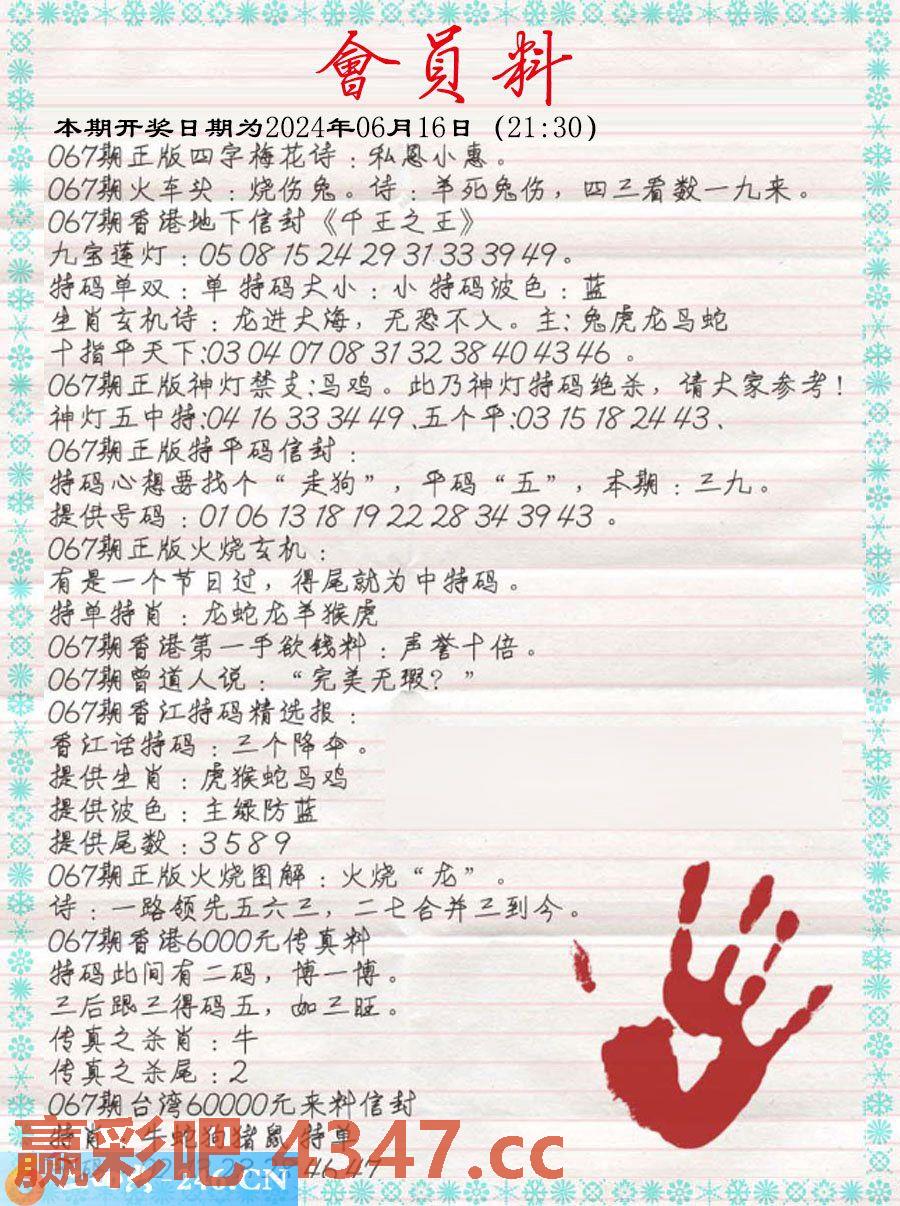 會員料
本期开奖日期为2024年06月16日 (21:30)
067期正版四字梅花诗：私恩小惠。
067期火车头：烧伤兔。诗：羊死兔伤，四三看数一九来。
067期香港地下信封《千王之王》
九宝莲灯：05 08 15 24 29 31 33 39 49。
特码单双：单 特码大小：小 特码波色：蓝
生肖玄机诗：龙进大海，无恐不入。主:兔虎龙鸟蛇
十指平天下:03 04 07 08 31 32 38 40 43 46 。
067期正版神灯禁支:鸟鸡。此乃神灯特码绝杀，请大家参考！
神灯五中特:04 16 33 34 49、五个平:03 15 18 24 43、
067期正版特平码信封：
特码心想要找个“走狗”，平码“五”，本期：三九。
提供号码：01 06 13 18 19 22 28 34 39 43 。
067期正版火烧玄机：
有是一个节日过，得尾就为中特码。
特单特肖：龙蛇龙羊猴虎
067期香港第一手欲钱料：声誉十倍。
067期曾道人说：“完美无瑕？”
067期香江特码精选报：
香江话特码：三个降伞。
提供生肖：虎猴蛇鸟鸡
提供波色：主绿防蓝
提供尾数：3 5 8 9
067期正版火烧图解：火烧“龙”。
诗：一路领先五六三，二七合并三到今。
067期香港6000元传真料
特码此间有二码，博一博。
三后跟三得码五，如三旺。
传真之杀肖：牛
传真之杀尾：2
067期台湾60000元来料信封
特肖：牛蛇狗猪鼠 特单
赢彩吧4347.cc
46 47
246.CN